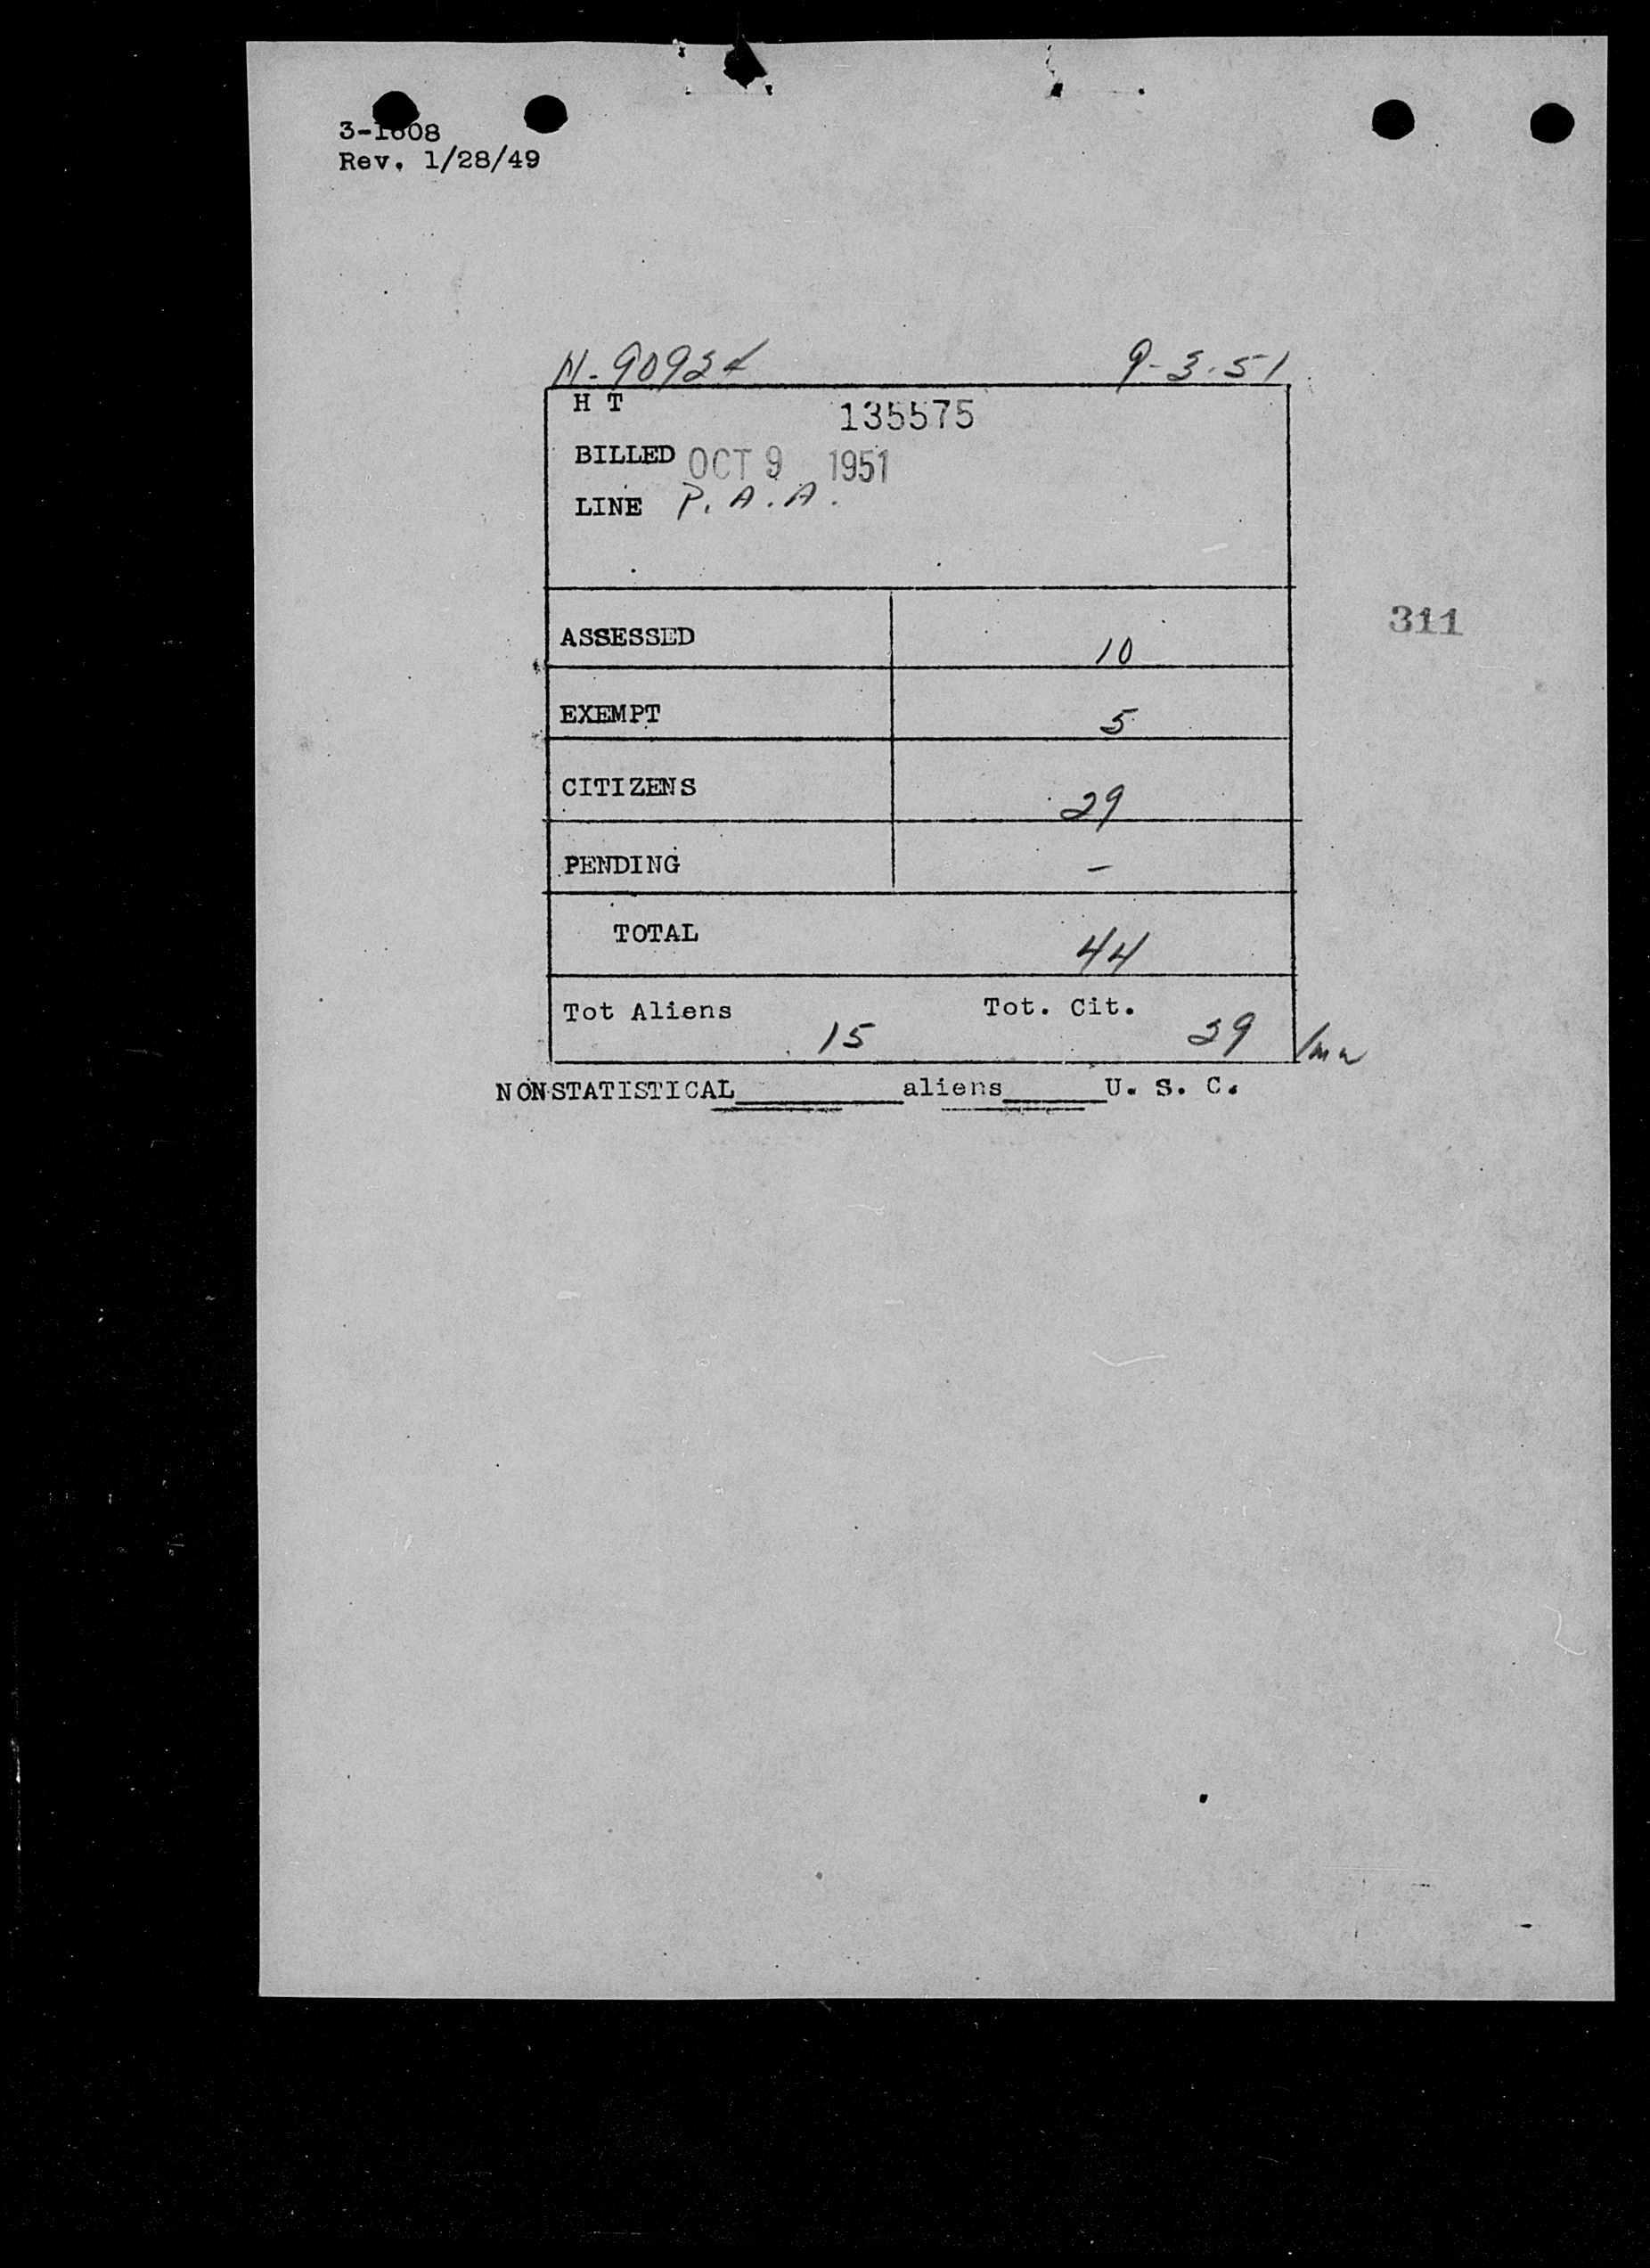 3-1608
Rev. 1/28/49
N-90924 9-3-51
H T 135575
BILLED OCT 9 1951
LINE P.A.A.
311
ASSESSED 10
EXEMPT 5
CITIZENS 29
PENDING -
TOTAL 44
Tot Aliens 15 Tot. Cit. 29
NONSTATISTICAL__________aliens______U. S. C.